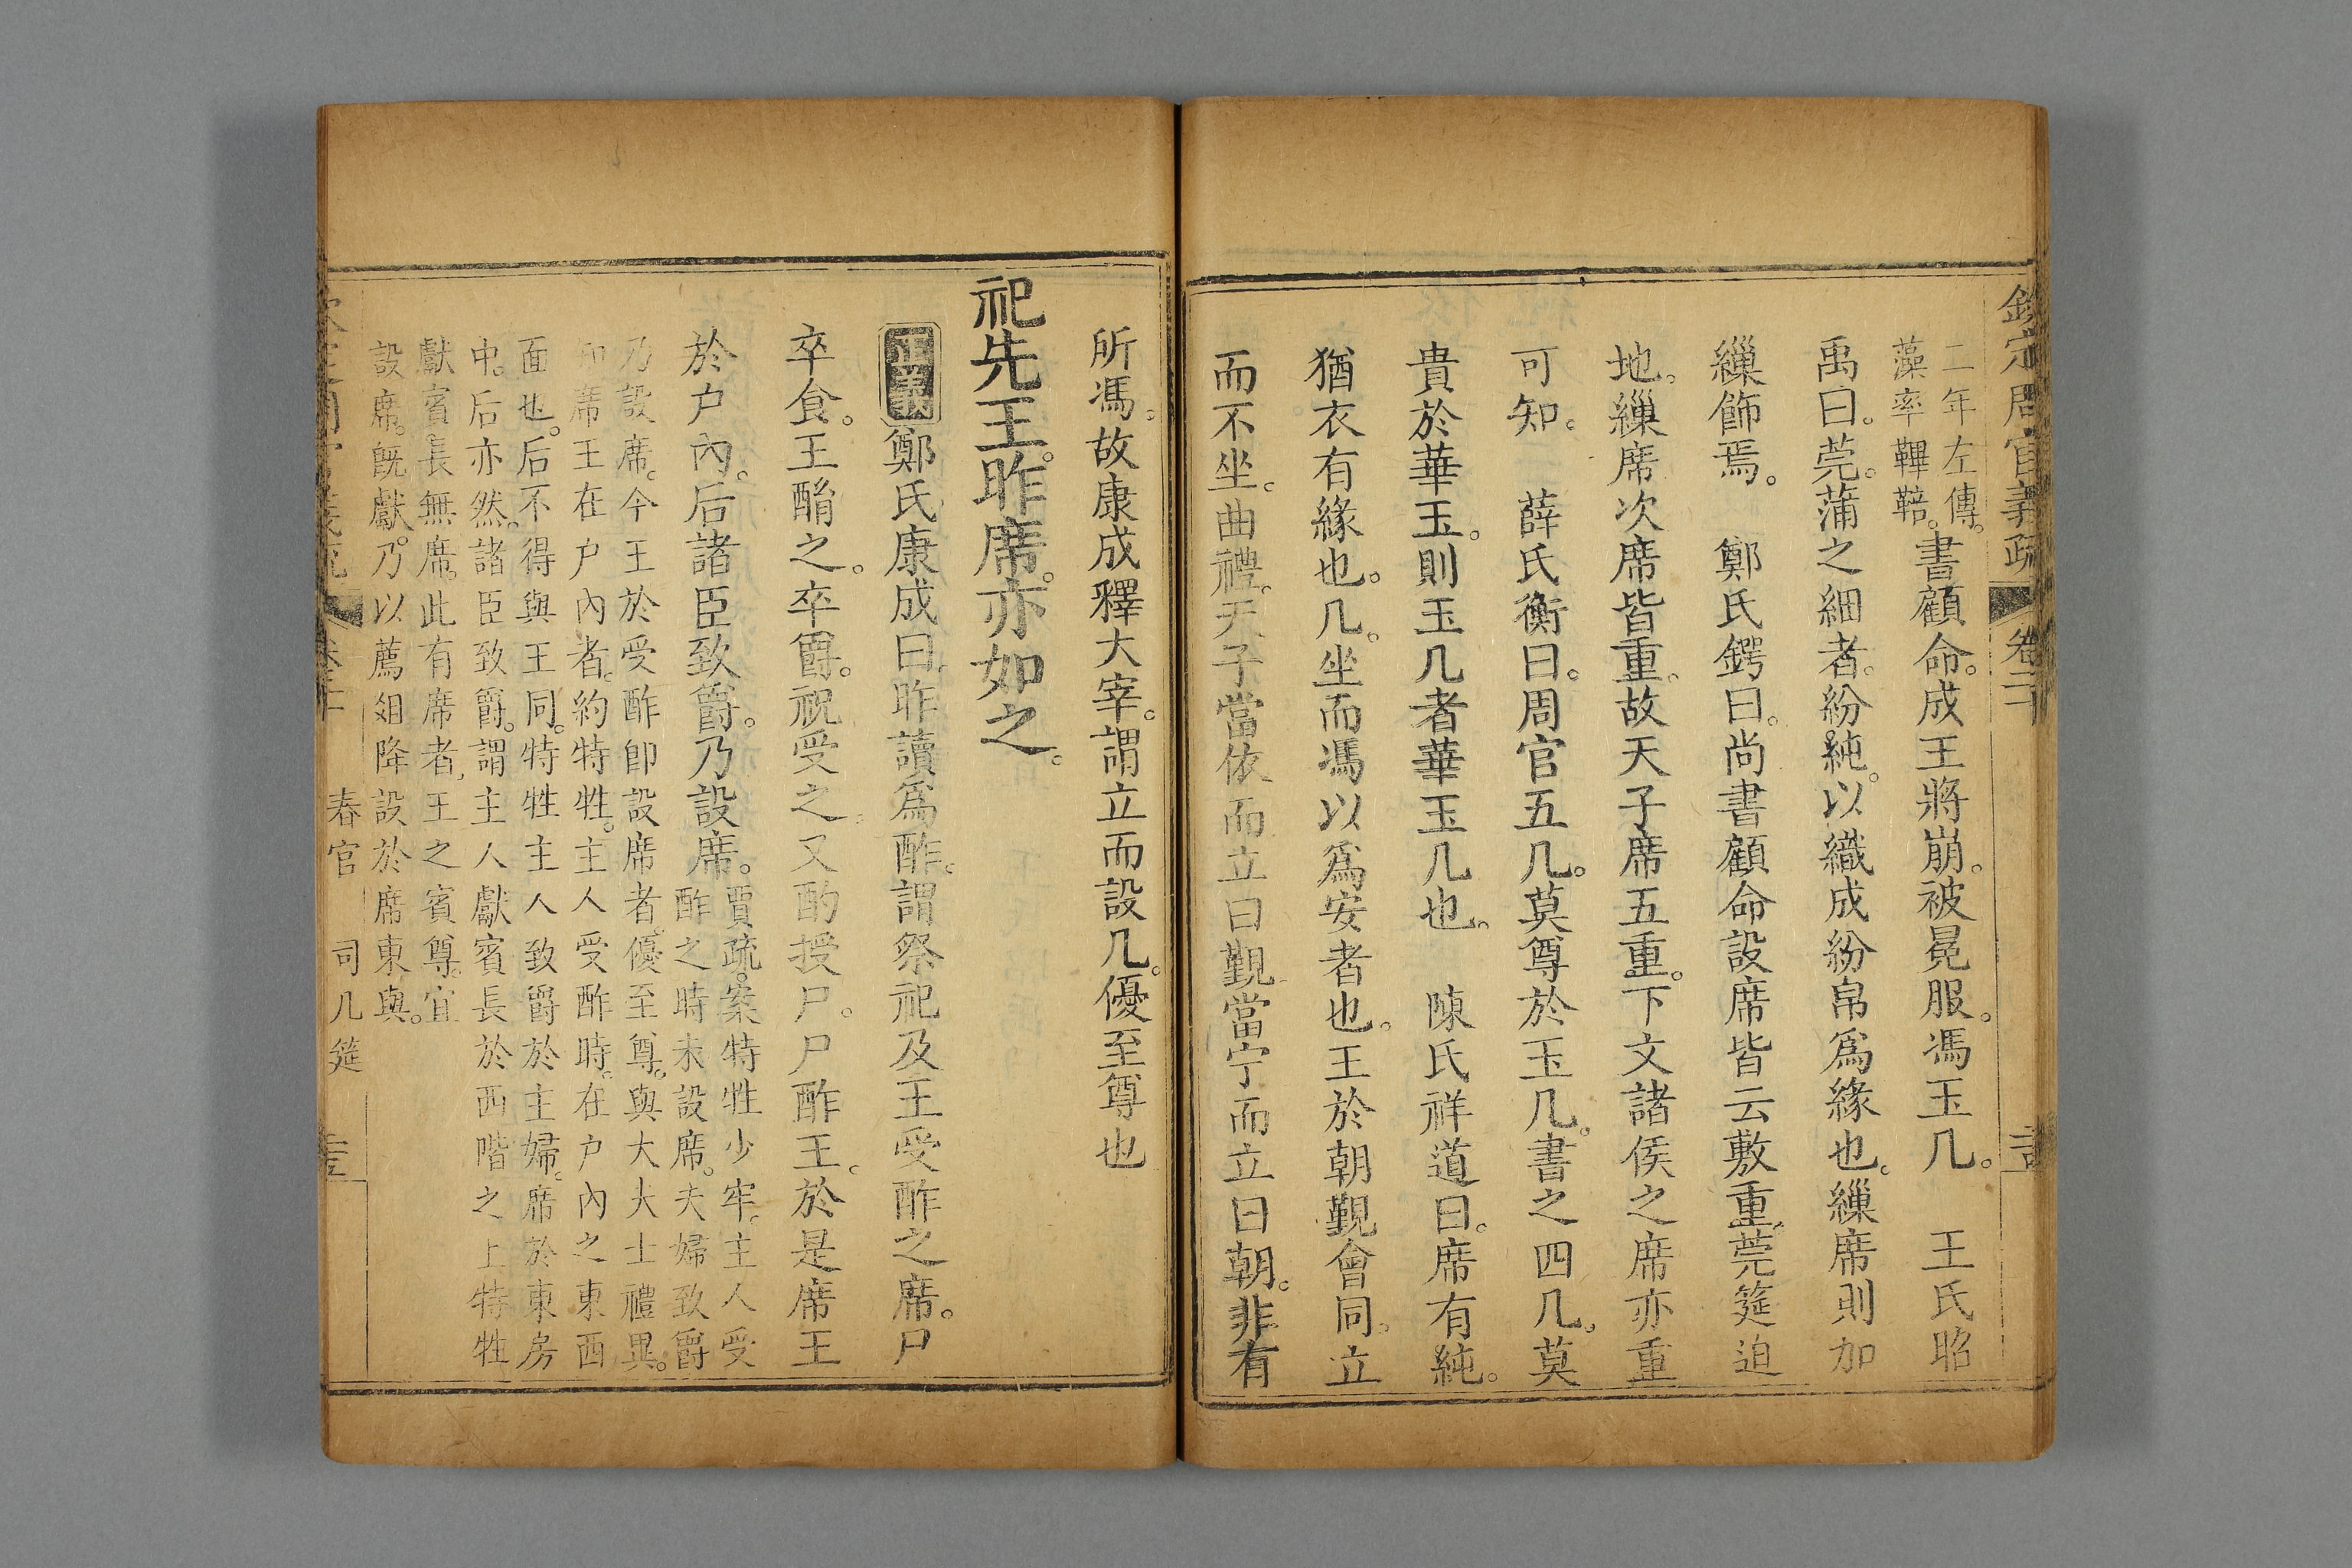 欽定周官義疏 卷二十
二年左傳。
藻率鞞鞛。
書顧命。成王將崩。被冕服。馮玉几。 王氏昭
禹曰。莞。蒲之細者。紛純。以織成紛帛爲緣也。繅席則加
繅飾焉。 鄭氏鍔曰。尚書顧命設席皆云敷重。莞筵迫
地。繅席次席皆重。故天子席五重。下文諸侯之席亦重
可知。 薛氏衡曰。周官五几。莫尊於玉几。書之四几。莫
貴於華玉。則玉几者華玉几也。 陳氏祥道曰。席有純。
猶衣有緣也。几。坐而馮以爲安者也。王於朝覲會同。立
而不坐。曲禮。天子當依而立曰覲。當宁而立曰朝。非有
所馮。故康成釋大宰。謂立而設几。優至尊也
祀先王。昨席。亦如之。
正義 鄭氏康成曰。昨讀爲酢。謂祭祀及王受酢之席。尸
卒食。王酳之。卒爵。祝受之。又酌授尸。尸酢王。於是席王
於户內。后諸臣致爵。乃設席。
賈疏。案特牲少牢。主人受
酢之時未設席。夫婦致爵
乃設席。今王於受酢卽設席者。優至尊。與大夫士禮異。
卽席王在户內者。約特牲。主人受酢時。在户內之東西
面也。后不得與王同。特牲主人致爵於主婦。席於東房
中。后亦然。諸臣致爵。謂主人獻賓長於西階之上。特牲
獻賓長無席。此有席者。王之賓尊。宜
設席。旣獻。乃以薦俎降設於席東與。
春官 司几筵